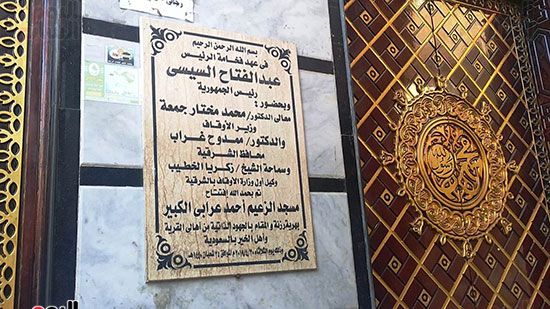 بسم الله الرحمن الرحيم
في عهد فخامة الرئيس
عبدالفتاح السيسى
رئيس الجمهورية
وبحضور :
معالى الدكتور/ محمد مختار جمعة
وزير الأوقاف
والدكتور/ ممدوح غراب
محافظ الشرقية
وسماحة الشيخ/ زكريا الخطيب
وكيل أول وزارة الأوقاف بالشرقية
تم بحمد الله إفتتاح
مسجد الزعيم أحمد عرابى الكبير
بهرية رزنة والمقام بالجهود الذاتية من أهالى القرية
وأهل الخير بالسعودية
وذلك يوم الثلاثاء